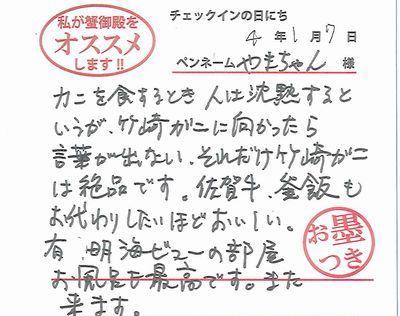 私が蟹御殿を
オススメ
します!!
チェックインの日にち
4年1月7日
ペンネーム やまちゃん 様
カニを食するとき人は沈黙すると
いうが、竹崎ガニに向かったら
言葉が出ない、それだけ竹崎ガニ
は絶品です。佐賀牛、釜飯も
お代わりしたいほどおいしい。
有明海ビューの部屋
お風呂も最高です。また
来ます。
お墨
つき